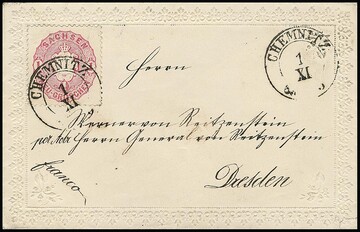 SACHSEN
CHEMNITZ
1
XI
CHEMNITZ
1
XI
Herrn
Werner von Reitzenstein
per Adr Herrn Generalvon Reitzenstein
Dresden
franco